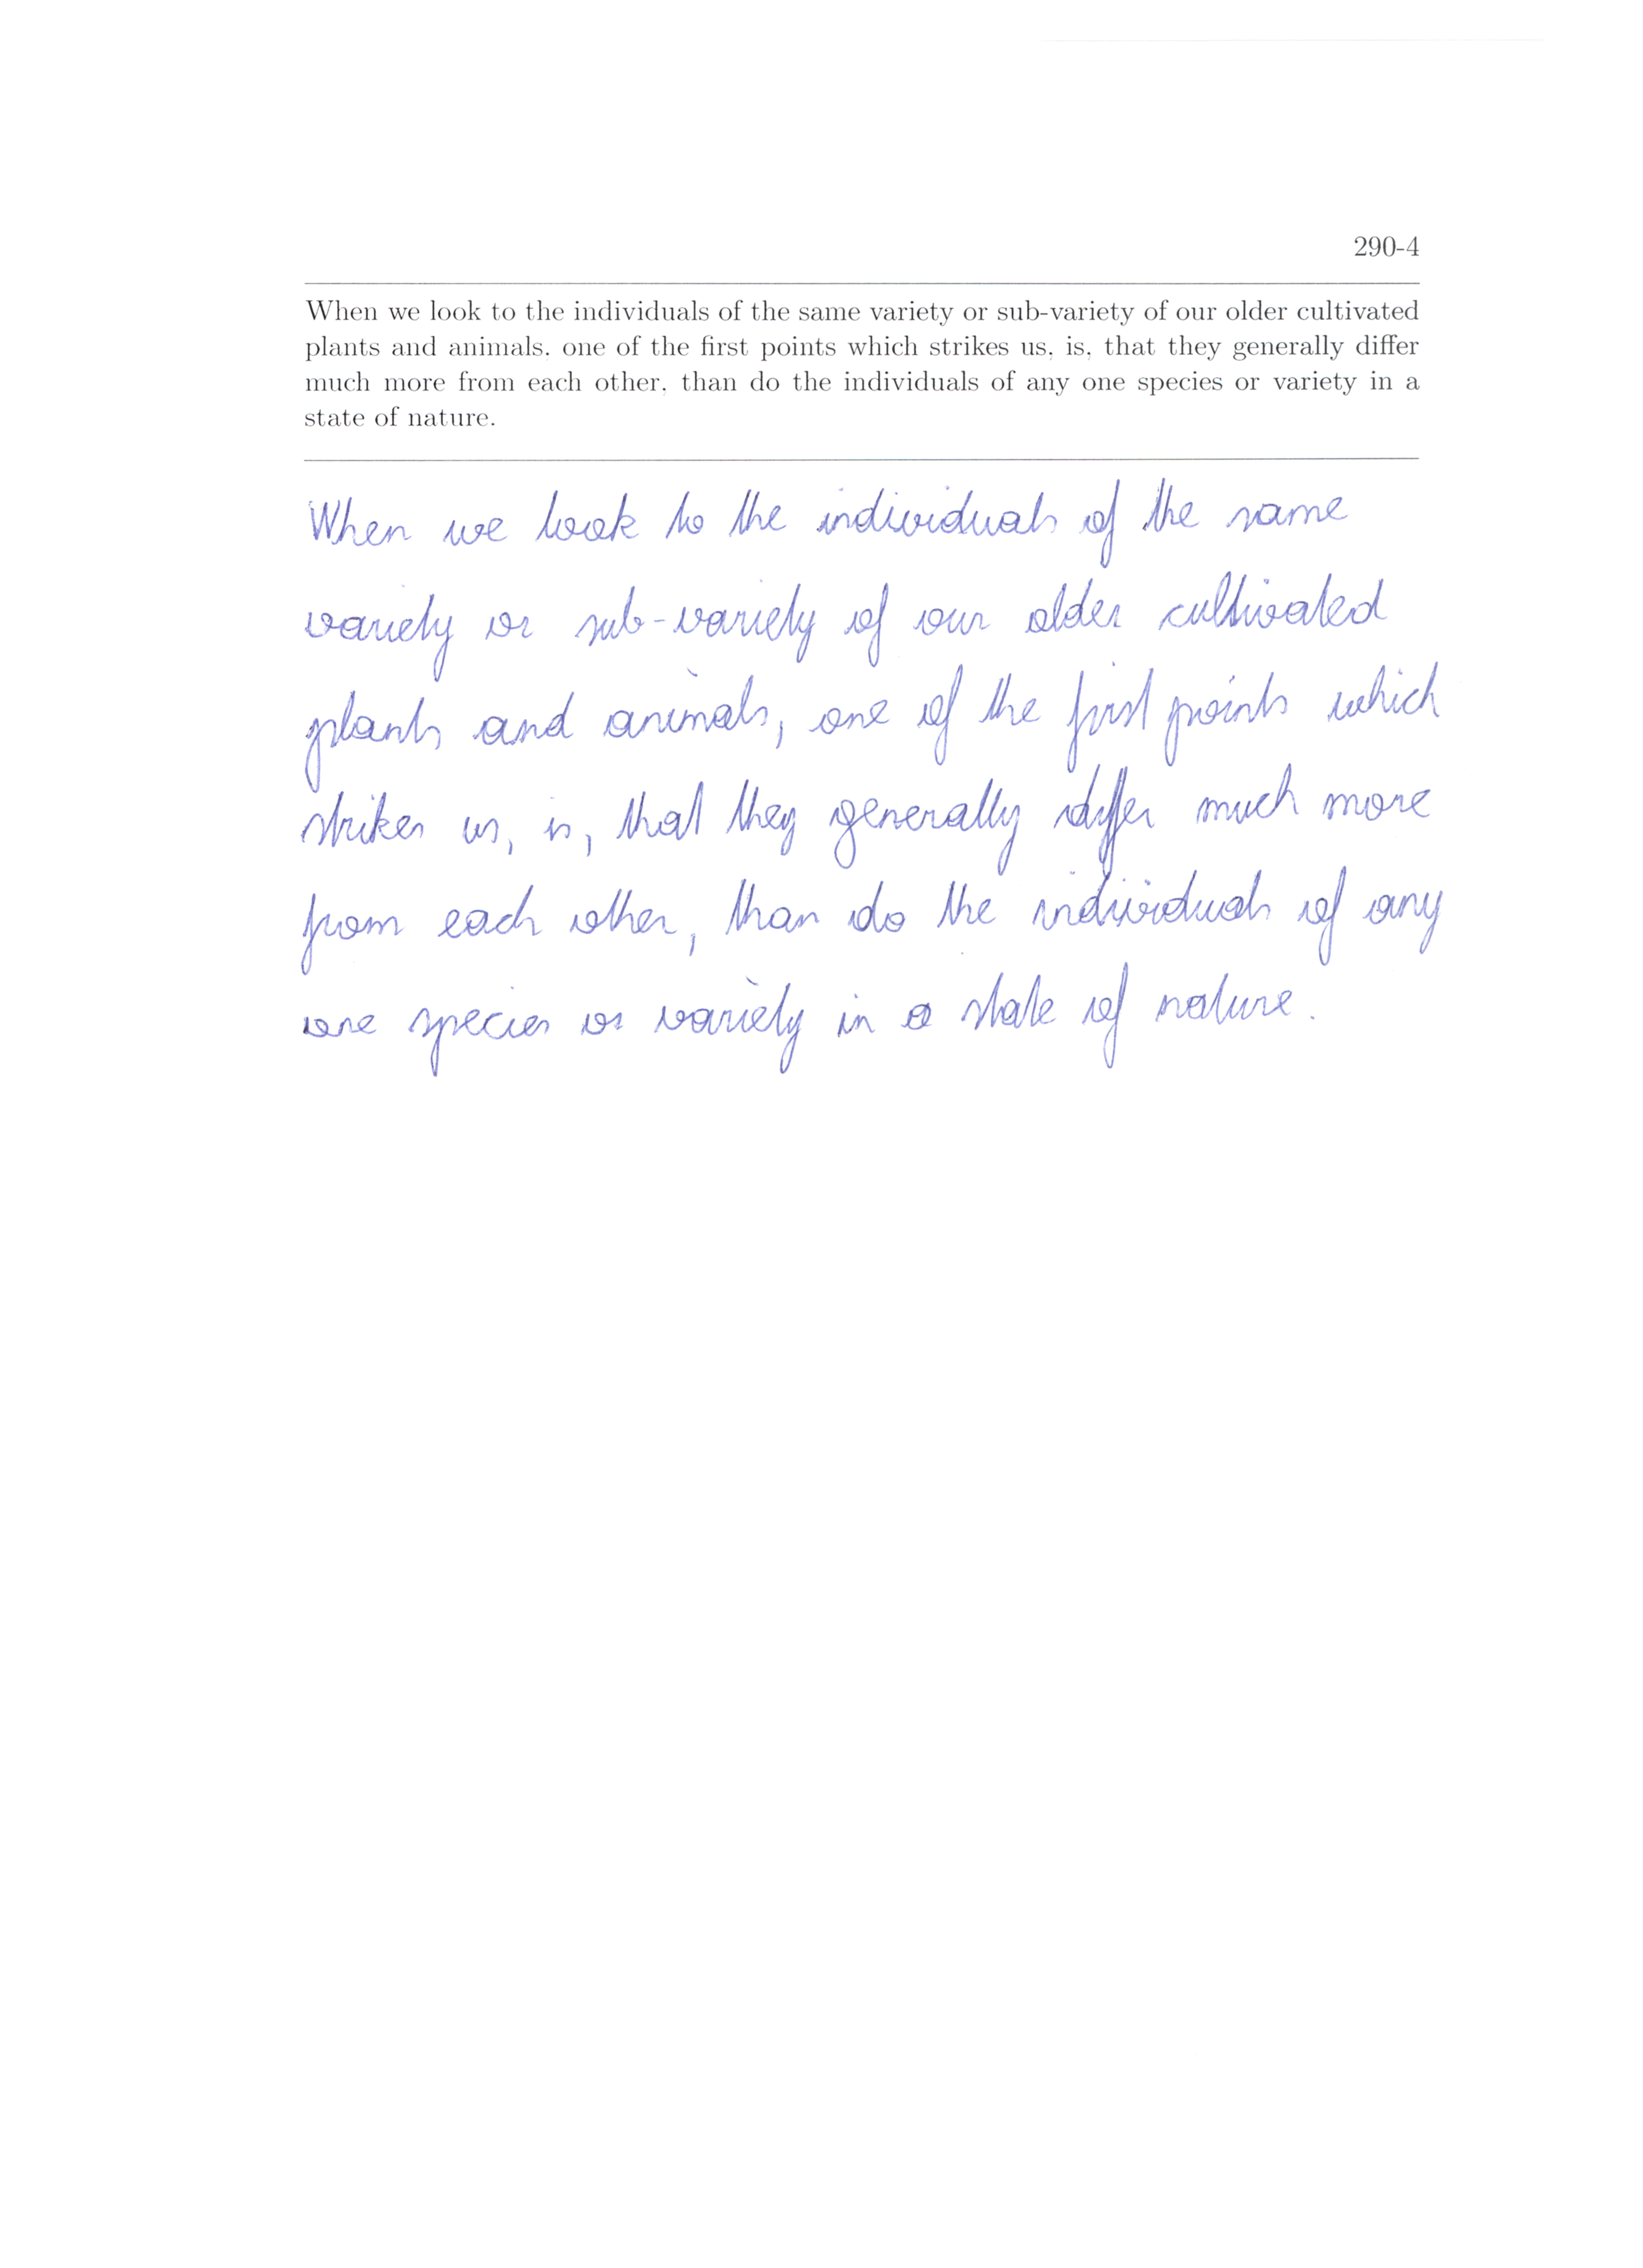 290-4
When we look to the individuals of the same variety or sub-variety of our older cultivated
plants and animals, one of the first points which strikes us, is, that they generally differ
much more from each other, than do the individuals of any one species or variety in a
state of nature.
When we look to the individuals of the same
variety or sub-variety of our older cultivated
plants and animals, one of the first points which
strikes us, is, that they generally differ much more
from each other, than do the individuals of any
one species or variety in a state of nature.